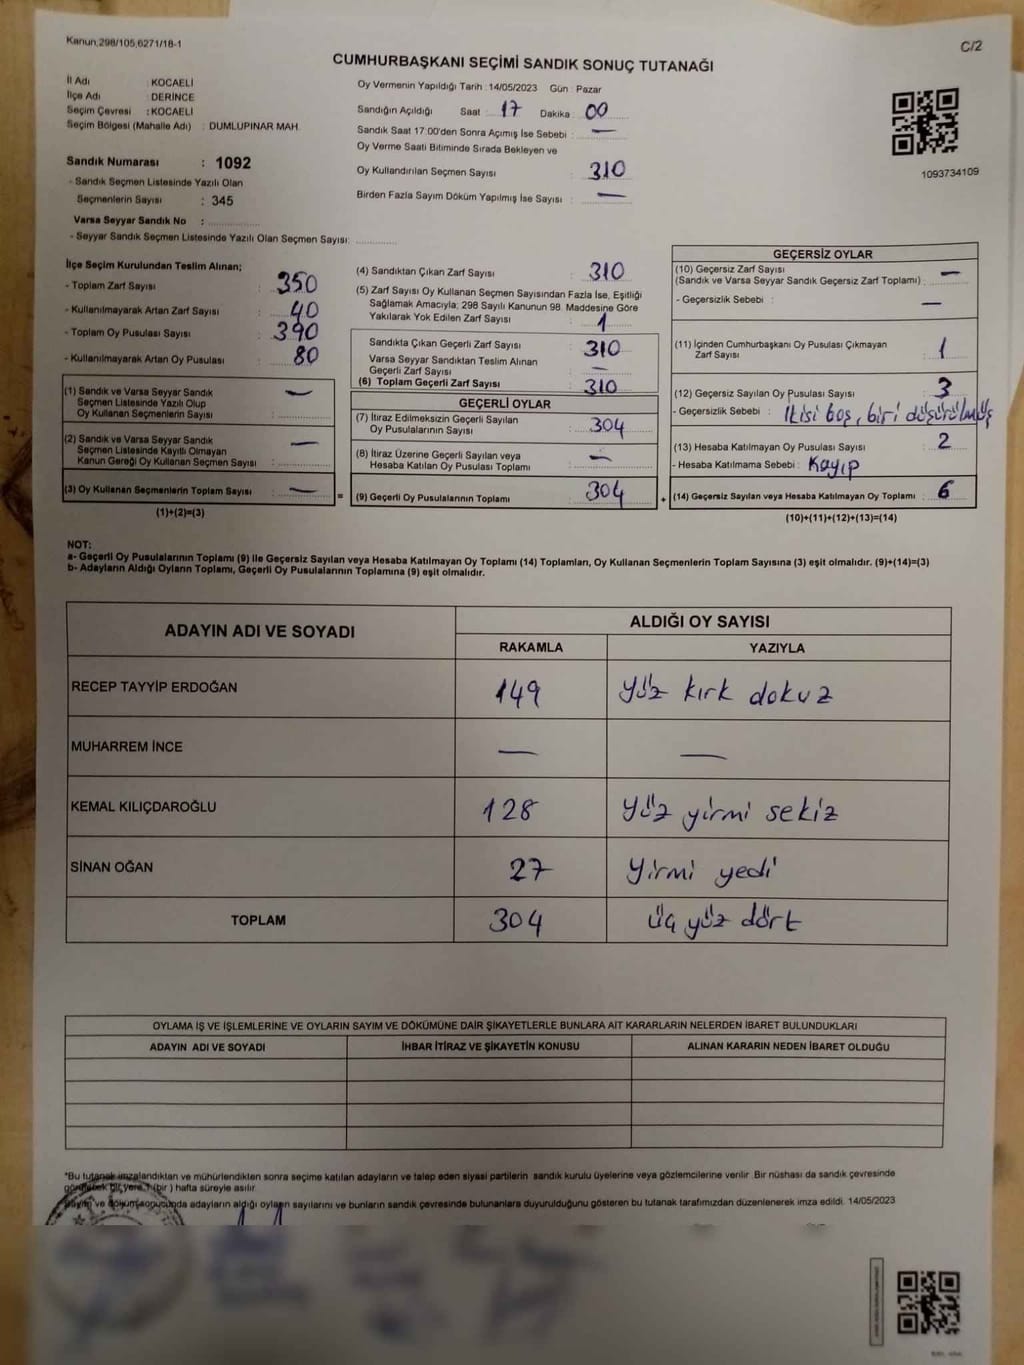 Kanun,298/105,6271/18-1
C/2
CUMHURBAŞKANI SEÇİMİ SANDIK SONUÇ TUTANAĞI
İl Adı : KOCAELİ
İlçe Adı : DERİNCE
Seçim Çevresi : KOCAELİ
Seçim Bölgesi (Mahalle Adı) : DUMLUPINAR MAH.
Sandık Numarası : 1092
- Sandık Seçmen Listesinde Yazılı Olan
Seçmenlerin Sayısı : 345
Varsa Seyyar Sandık No :
- Seyyar Sandık Seçmen Listesinde Yazılı Olan Seçmen Sayısı:
Oy Vermenin Yapıldığı Tarih : 14/05/2023 Gün : Pazar
Sandığın Açıldığı Saat : 17 Dakika : 00
Sandık Saat 17:00'den Sonra Açımış İse Sebebi : —
Oy Verme Saati Bitiminde Sırada Bekleyen ve
Oy Kullandırılan Seçmen Sayısı : 310
Birden Fazla Sayım Döküm Yapılmış İse Sayısı : —
1093734109
İlçe Seçim Kurulundan Teslim Alınan;
- Toplam Zarf Sayısı : 350
- Kullanılmayarak Artan Zarf Sayısı : 40
- Toplam Oy Pusulası Sayısı : 390
- Kullanılmayarak Artan Oy Pusulası : 80
(1) Sandık ve Varsa Seyyar Sandık
Seçmen Listesinde Yazılı Olup
Oy Kullanan Seçmenlerin Sayısı : —
(2) Sandık ve Varsa Seyyar Sandık
Seçmen Listesinde Kayıtlı Olmayan
Kanun Gereği Oy Kullanan Seçmen Sayısı : —
(3) Oy Kullanan Seçmenlerin Toplam Sayısı : — =
(1)+(2)=(3)
(4) Sandıktan Çıkan Zarf Sayısı : 310
(5) Zarf Sayısı Oy Kullanan Seçmen Sayısından Fazla İse, Eşitliği
Sağlamak Amacıyla; 298 Sayılı Kanunun 98. Maddesine Göre
Yakılarak Yok Edilen Zarf Sayısı : 1
Sandıkta Çıkan Geçerli Zarf Sayısı : 310
Varsa Seyyar Sandıktan Teslim Alınan
Geçerli Zarf Sayısı : —
(6) Toplam Geçerli Zarf Sayısı : 310
GEÇERLİ OYLAR
(7) İtiraz Edilmeksizin Geçerli Sayılan
Oy Pusulalarının Sayısı : 304
(8) İtiraz Üzerine Geçerli Sayılan veya
Hesaba Katılan Oy Pusulası Toplamı : —
(9) Geçerli Oy Pusulalarının Toplamı : 304 +
GEÇERSİZ OYLAR
(10) Geçersiz Zarf Sayısı —
(Sandık ve Varsa Seyyar Sandık Geçersiz Zarf Toplamı) :
- Geçersizlik Sebebi : —
(11) İçinden Cumhurbaşkanı Oy Pusulası Çıkmayan
Zarf Sayısı : 1
(12) Geçersiz Sayılan Oy Pusulası Sayısı : 3
- Geçersizlik Sebebi : İkisi boş, biri düşürülmüş
(13) Hesaba Katılmayan Oy Pusulası Sayısı : 2
- Hesaba Katılmama Sebebi : Kayıp
(14) Geçersiz Sayılan veya Hesaba Katılmayan Oy Toplamı : 6
(10)+(11)+(12)+(13)=(14)
NOT:
a- Geçerli Oy Pusulalarının Toplamı (9) ile Geçersiz Sayılan veya Hesaba Katılmayan Oy Toplamı (14) Toplamları, Oy Kullanan Seçmenlerin Toplam Sayısına (3) eşit olmalıdır. (9)+(14)=(3)
b- Adayların Aldığı Oyların Toplamı, Geçerli Oy Pusulalarının Toplamına (9) eşit olmalıdır.
ADAYIN ADI VE SOYADI
ALDIĞI OY SAYISI
RAKAMLA YAZIYLA
RECEP TAYYİP ERDOĞAN 149 yüz kırk dokuz
MUHARREM İNCE — —
KEMAL KILIÇDAROĞLU 128 yüz yirmi sekiz
SİNAN OĞAN 27 yirmi yedi
TOPLAM 304 üç yüz dört
OYLAMA İŞ VE İŞLEMLERİNE VE OYLARIN SAYIM VE DÖKÜMÜNE DAİR ŞİKAYETLERLE BUNLARA AİT KARARLARIN NELERDEN İBARET BULUNDUKLARI
ADAYIN ADI VE SOYADI İHBAR İTİRAZ VE ŞİKAYETİN KONUSU ALINAN KARARIN NEDEN İBARET OLDUĞU
*Bu tutanak imzalandıktan ve mühürlendikten sonra seçime katılan adayların ve talep eden siyasi partilerin sandık kurulu üyelerine veya gözlemcilerine verilir. Bir nüshası da sandık çevresinde
görülecek bir yere 1 (bir ) hafta süreyle asılır.
Sayım ve döküm sonucunda adayların aldığı oyların sayılarını ve bunların sandık çevresinde bulunanlara duyurulduğunu gösteren bu tutanak tarafımızdan düzenlenerek imza edildi. 14/05/2023